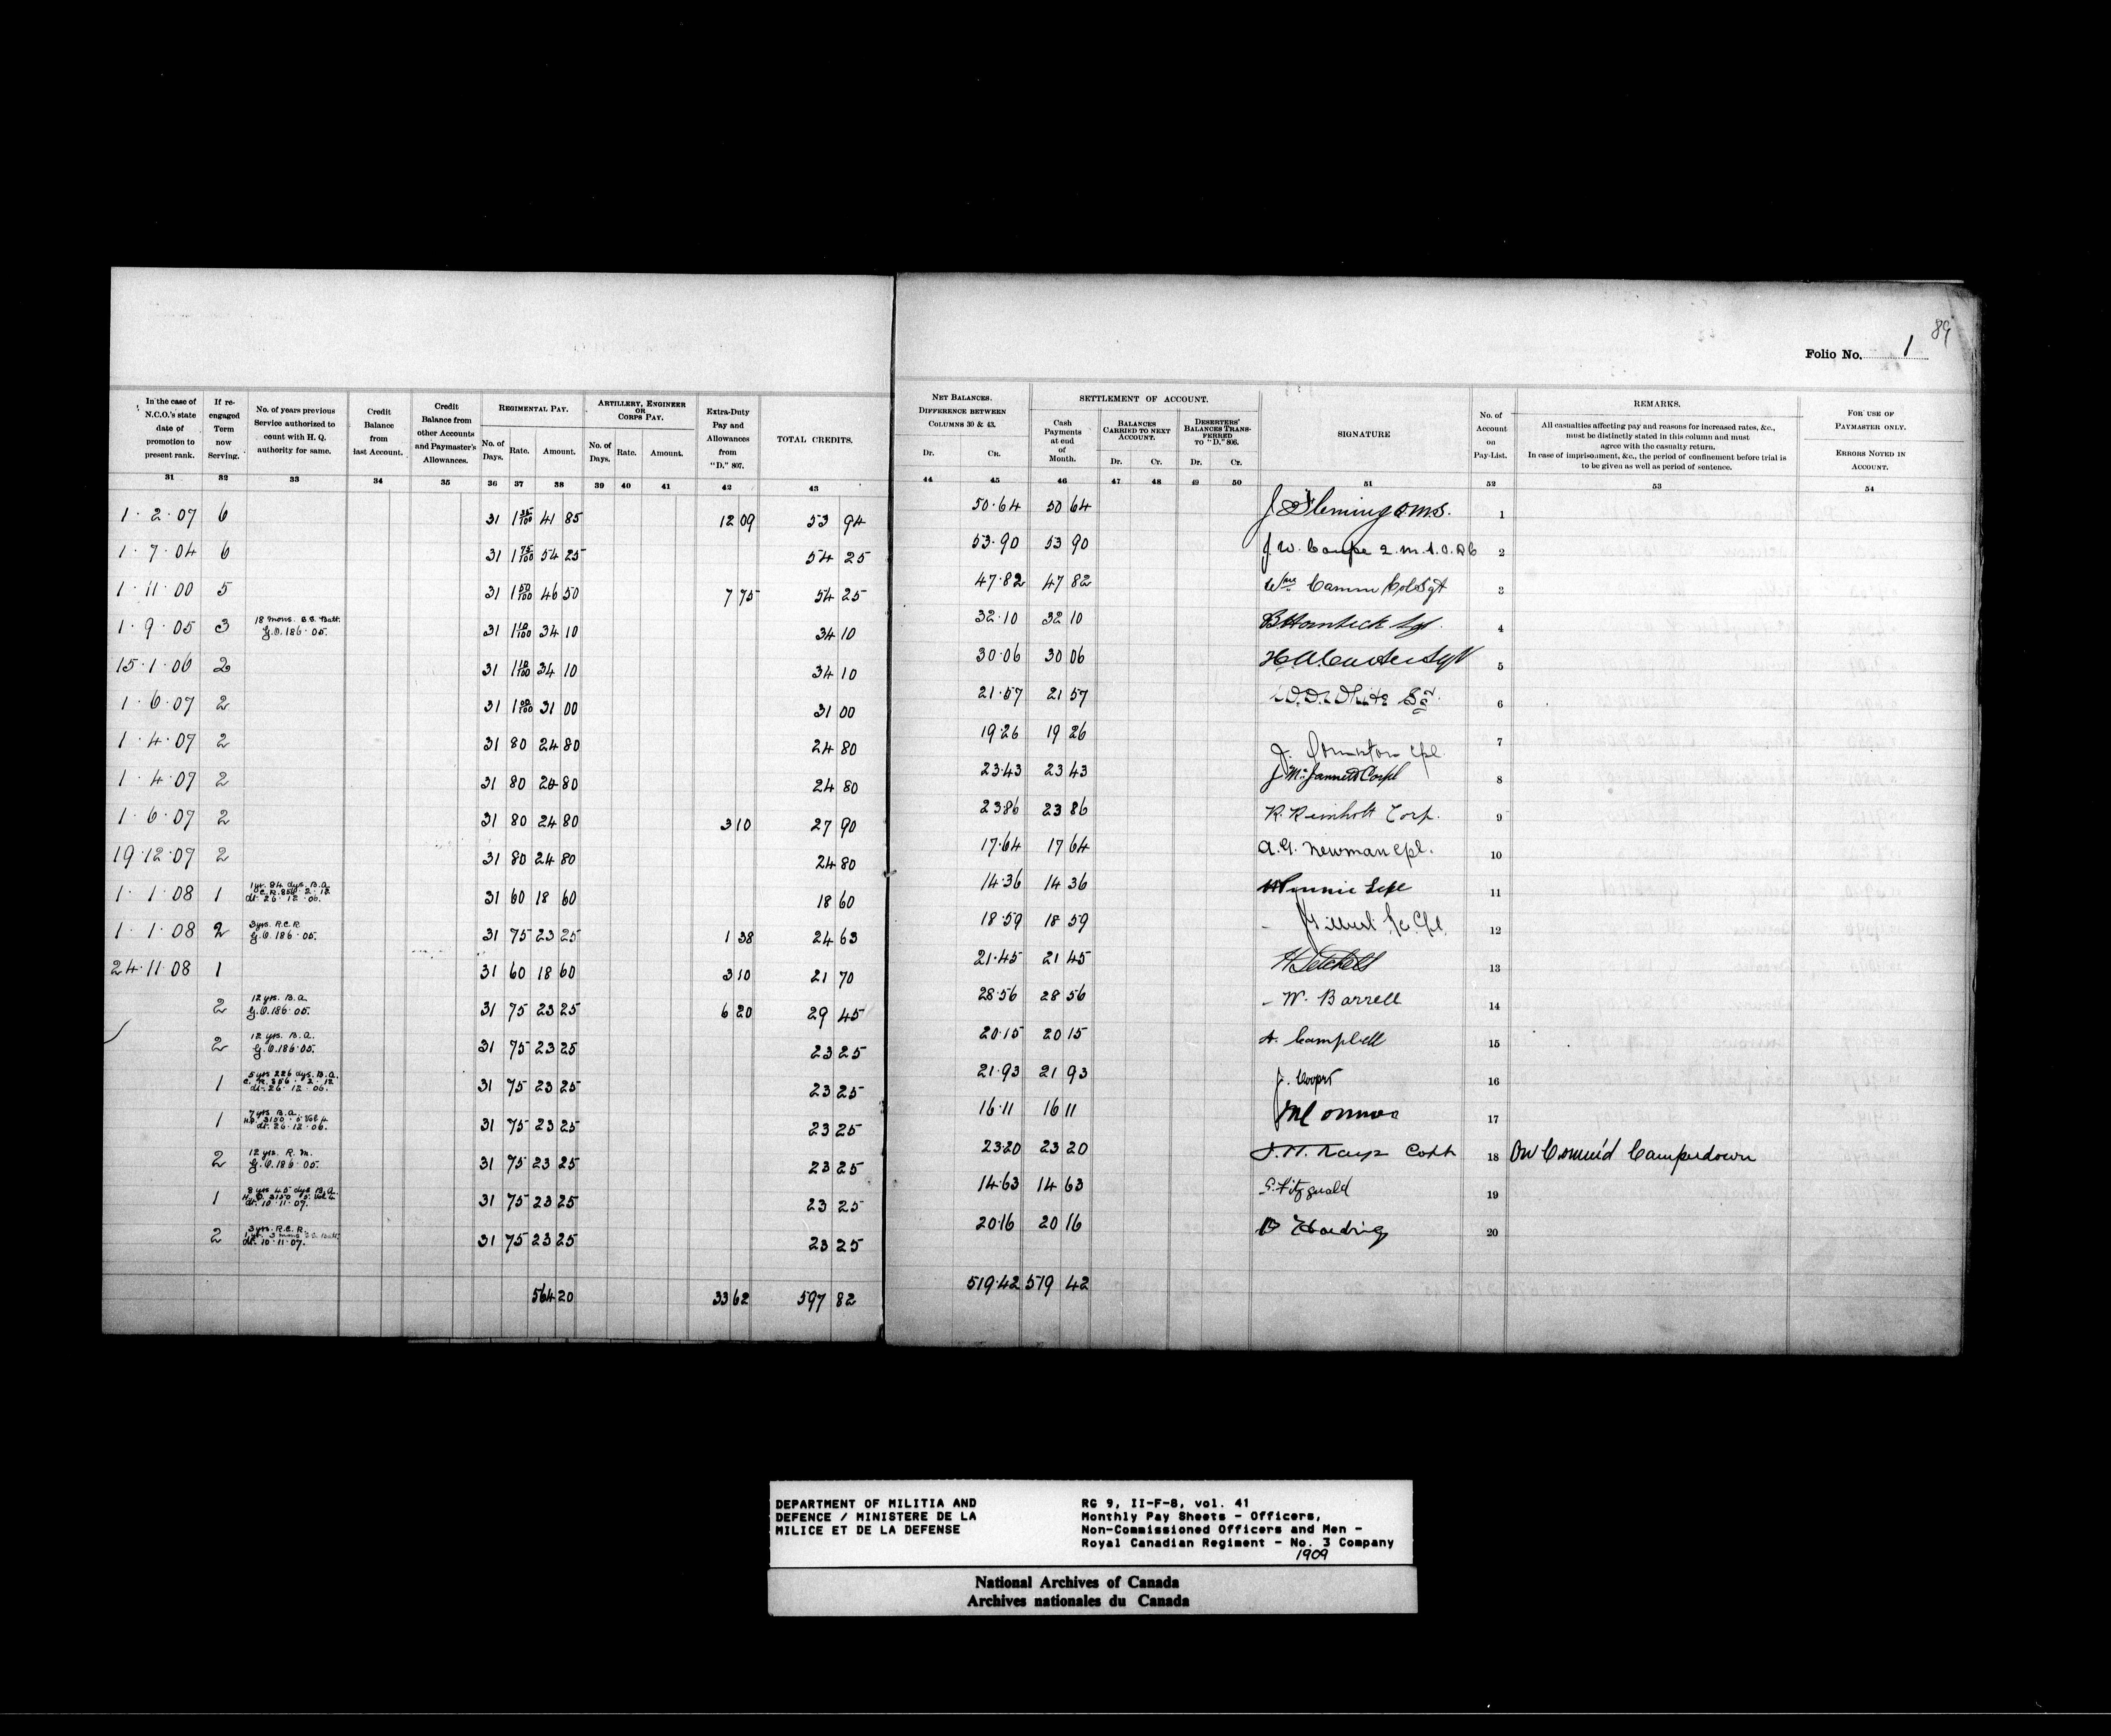 89
Folio No. 1
In the case of N.C.O.'s state date of promotion to present rank.
If re-engaged Term now Serving.
No. of years previous Service authorized to count with H. Q. authority for same.
Credit Balance from last Account.
Credit Balance from other Accounts and Paymaster's Allowances.
REGIMENTAL PAY.
No. of Days. Rate. Amount.
ARTILLERY, ENGINEER OR CORPS PAY.
No. of Days. Rate. Amount.
Extra-Duty Pay and Allowances from "D." 807.
TOTAL CREDITS.
NET BALANCES.
DIFFERENCE BETWEEN COLUMNS 30 & 43.
Dr. CR.
SETTLEMENT OF ACCOUNT.
Cash Payments at end of Month.
BALANCES CARRIED TO NEXT ACCOUNT.
Dr. Cr.
DESERTERS' BALANCES TRANSFERRED TO "D." 806.
Dr. Cr.
SIGNATURE
No. of Account on Pay-List.
REMARKS.
All casualties affecting pay and reasons for increased rates, &c.,
must be distinctly stated in this column and must
agree with the casualty return.
In case of imprisonment, &c., the period of confinement before trial is
to be given as well as period of sentence.
FOR USE OF PAYMASTER ONLY.
ERRORS NOTED IN ACCOUNT.
31 32 33 34 35 36 37 38 39 40 41 42 43 44 45 46 47 48 49 50 51 52 53 54
1·2·07 6 31 1 35/100 41 85 12 09 53 94 50·64 50 64 J Fleming 1
1·7·04 6 31 1 75/100 54 25 54 25 53·90 53 90 J. W. 2
1·11·00 5 31 1 50/100 46 50 7 75 54 25 47·82 47 82 Wm Camm Col Sgt 3
1·9·05 3 18 mons. Batt. G.O.186·05. 31 1 10/100 34 10 34 10 32·10 32 10 Sgt. 4
15·1·06 2 31 1 10/100 34 10 34 10 30·06 30 06 H. A. Sgt 5
1·6·07 2 31 1 00/100 31 00 31 00 21·57 21 57 W. D. White 6
1·4·07 2 31 80 24 80 24 80 19·26 19 26 J. Cpl. 7
1·4·07 2 31 80 24 80 24 80 23·43 23 43 J. Corpl 8
1·6·07 2 31 80 24 80 3 10 27 90 23 86 23 86 R. Reinholt Corp. 9
19·12·07 2 31 80 24 80 24 80 17·64 17 64 Newman Cpl. 10
1·1·08 1 1 yr. 84 dys. B.A. dt. 26·12·06. 31 60 18 60 18 60 14·36 14 36 11
1·1·08 2 3 yrs. R.C.R. G.O.186·05. 31 75 23 25 1 38 24 63 18·59 18 59 Gilbert 12
24·11·08 1 31 60 18 60 3 10 21 70 21·45 21 45 13
2 12 yrs. B.A. G.O.186·05. 31 75 23 25 6 20 29 45 28·56 28 56 W. Barrell 14
2 12 yrs. B.A. G.O.186·05. 31 75 23 25 23 25 20·15 20 15 A. Campbell 15
1 5 yrs 226 dys. B.A. dt. 26·12·06. 31 75 23 25 23 25 21·93 21 93 J. Cooper 16
1 7 yrs B.A. dt. 26·12·06. 31 75 23 25 23 25 16·11 16 11 17
2 12 yrs. R.M. G.O.186·05. 31 75 23 25 23 25 23·20 23 20 18 On Comm'd Camperdown
1 8 yrs 45 dys B.A. dt. 10·11·07. 31 75 23 25 23 25 14·63 14 63 Fitzgerald 19
2 3 yrs. R.C.R. dt. 10·11·07. 31 75 23 25 23 25 20·16 20 16 Harding 20
564 20 33 62 597 82 519·42 519 42
DEPARTMENT OF MILITIA AND
DEFENCE / MINISTERE DE LA
MILICE ET DE LA DEFENSE
RG 9, II-F-8, vol. 41
Monthly Pay Sheets - Officers,
Non-Commissioned Officers and Men -
Royal Canadian Regiment - No. 3 Company
1909
National Archives of Canada
Archives nationales du Canada